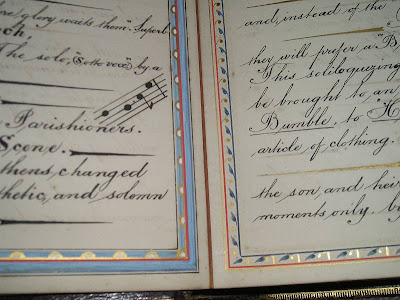 glory waits them." Superb
The solo, "Sotto voce", by a
Parishioners.
Scene.
thens, changed
thetic, and solomn
and, instead of the
they will prefer a "B
This soliloquezing
be brought to an
Bumble, to "H
article of clothing.
the son, and hei
moments only.